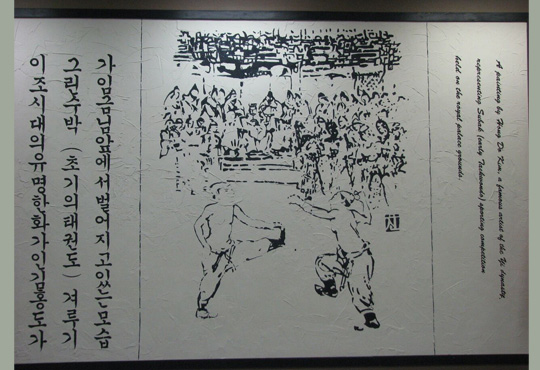 이조시대의유명한화가인김홍도가
그린수박 (초기의태권도) 겨루기
가임금님앞에서벌어지고있는모습
A painting by Hong Do Kim, a famous artist of the Yi dynasty,
representing Subak (early Taekwondo) sporting competition
held on the royal palace grounds.